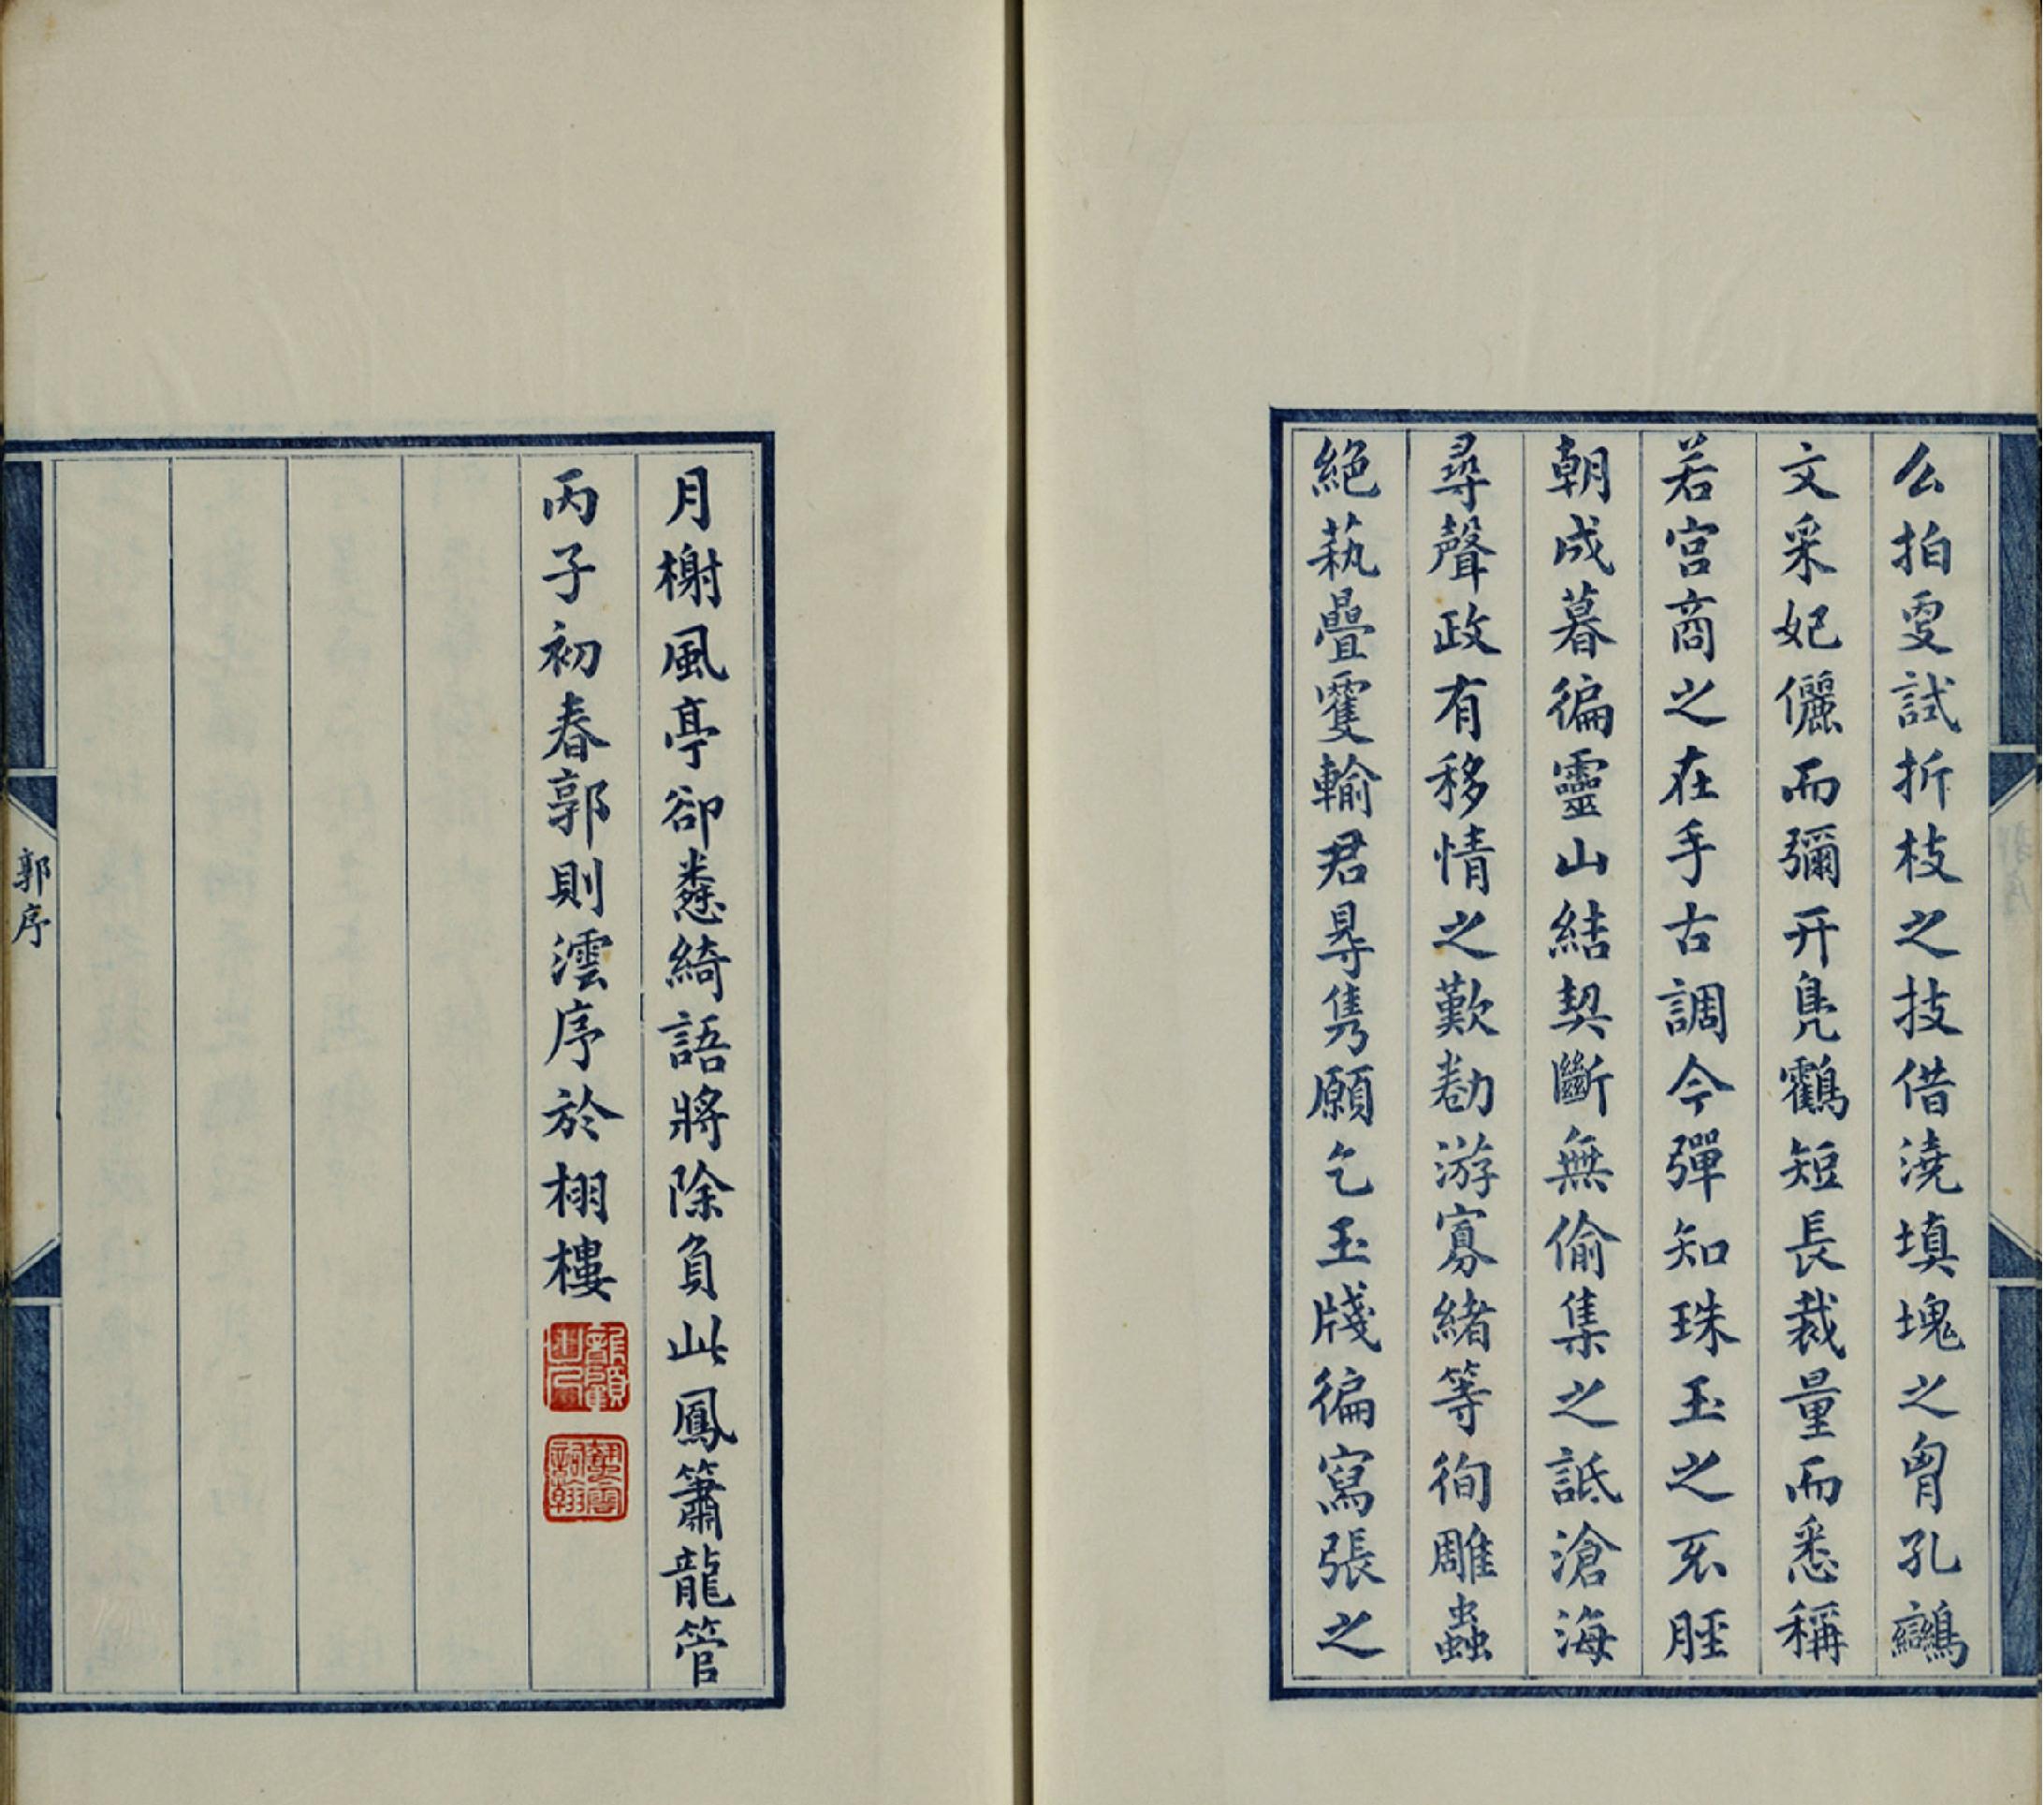 么拍雯試折枝之技借澆填塊之胷孔鸞
文采妃儷而彌工鳧鶴短長裁量而悉稱
若宮商之在手古調今彈知珠玉之不脛
朝成暮徧靈山結契斷無偷集之詆滄海
尋聲政有移情之歎勌游寡緒等徇雕蟲
絕蓺疊雙輸君㝵雋願乞玉牋徧寫張之
月榭風亭卻愁綺語將除負此鳳簫龍管
丙子初春郭則澐序於栩樓
郭序